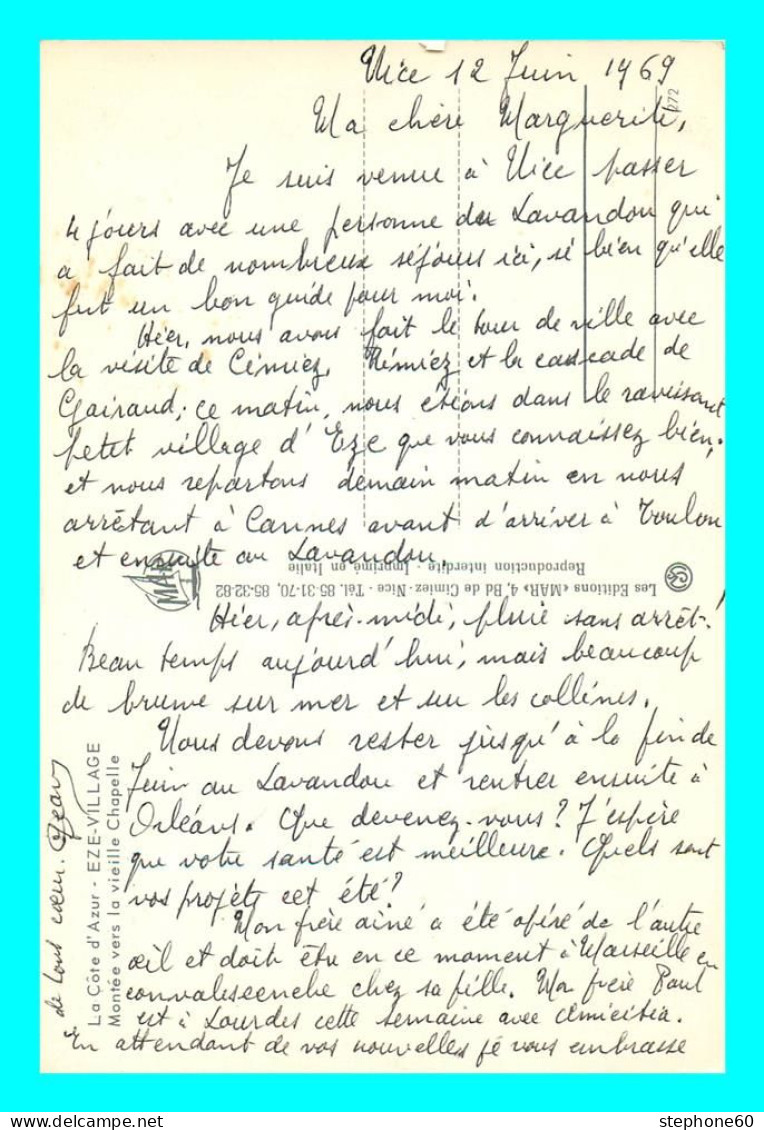 Nice 12 Juin 1969
Ma chère Marguerite,
Je suis venue à Nice passer
4 jours avec une personne du Lavandou qui
a fait de nombreux séjours ici, si bien qu'elle
fut un bon guide pour moi.
Hier, nous avons fait le tour de ville avec
la visite de Cimiez, et la cascade de
Gairaud; ce matin, nous étions dans le ravissant
petit village d'Eze que vous connaissez bien,
et nous repartons demain matin en nous
arrêtant à Cannes avant d'arriver à Toulon
et ensuite au Lavandou.
Hier, après-midi, pluie sans arrêt.
Beau temps aujourd'hui, mais beaucoup
de brume sur mer et sur les collines.
Nous devons rester jusqu'à la fin de
Juin au Lavandou et rentrer ensuite à
Orléans. Que devenez-vous? J'espère
que votre santé est meilleure. Quels sont
vos projets cet été?
Mon frère aîné a été opéré de l'autre
œil et doit être en ce moment à Marseille en
convalescenche chez sa fille. Mon frère Paul
est à Lourdes cette semaine avec
En attendant de vos nouvelles, je vous embrasse
de tout cœur.
272
MAR
Les Editions «MAR» 4, Bd de Cimiez-Nice - Tél. 85-31-70, 85-32-82
Reproduction interdite - Imprimé en Italie
La Côte d'Azur - EZE-VILLAGE
Montée vers la vieille Chapelle
stephone60